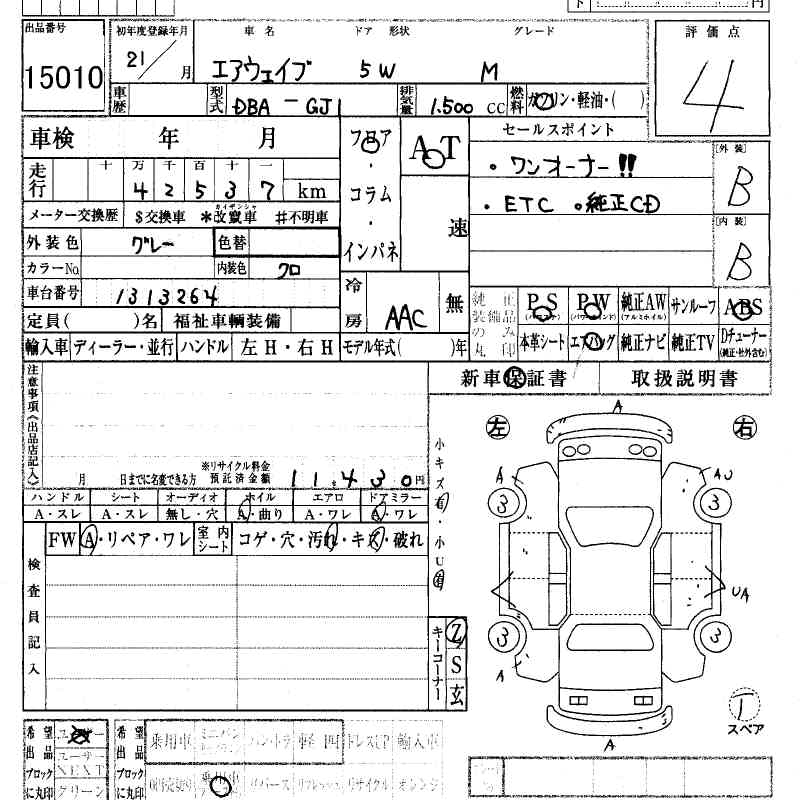 円
出品番号 初年度登録年月 車名 ドア形状 グレード 評価点
15010 21/月 エアウェイブ 5W M 4
車歴 型式 DBA-GJ1 排気量 1.500cc 燃料 ガソリン・軽油・( )
車検 年 月 フロア・コラム・インパネ AOT 速 セールスポイント
・ワンオーナー!!
・ETC ・純正CD
[外装] B
[内装] B
走行 十万千百十一
42537km
メーター交換歴 $交換車 *改竄車 #不明車
カイザンシャ
外装色 グレー 色替
カラーNo. 内装色 クロ
車台番号 1313264
冷房 AAC 無
定員( )名 福祉車輌装備
純正装備品のみ丸印 PS (パワステ) PW (パワーウインド) 純正AW (アルミホイル) サンルーフ ABS
本革シート エアバッグ 純正ナビ 純正TV Dチューナー (純正・社外含む)
輸入車 ディーラー・並行 ハンドル 左H・右H モデル年式( )年
新車保証書 取扱説明書
注意事項《出品店記入》
月 日までに名変できる方 ※リサイクル料金預託済金額 11,430円
ハンドル シート オーディオ ホイル エアロ ドアミラー
A・スレ A・スレ 無し・穴 A・曲り A・ワレ A・ワレ
FW A・リペア・ワレ 室内シート コゲ・穴・汚れ・キズ・破れ
検査員記入
小キズ有・小U有
キーコーナー Z S 玄
左 右
A
A AU
3 3
UA
3 3
A
A
T
スペア
希望出品ブロックに丸印 ユーザー ユーザーNEXT グリーン
希望出品ブロックに丸印 乗用車 ミニバン 軽四 ドレスUP 輸入車
売切り 乗用車 リバース リフレッシュ リサイクル オレンジ